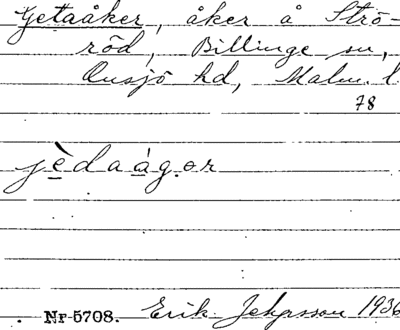 Getaåker, åker å Strö-
röd, Billinge sn,
Onsjö hd, Malm. l.
78
jèdaágər
Nr 5708. Erik Jeppsson 1936